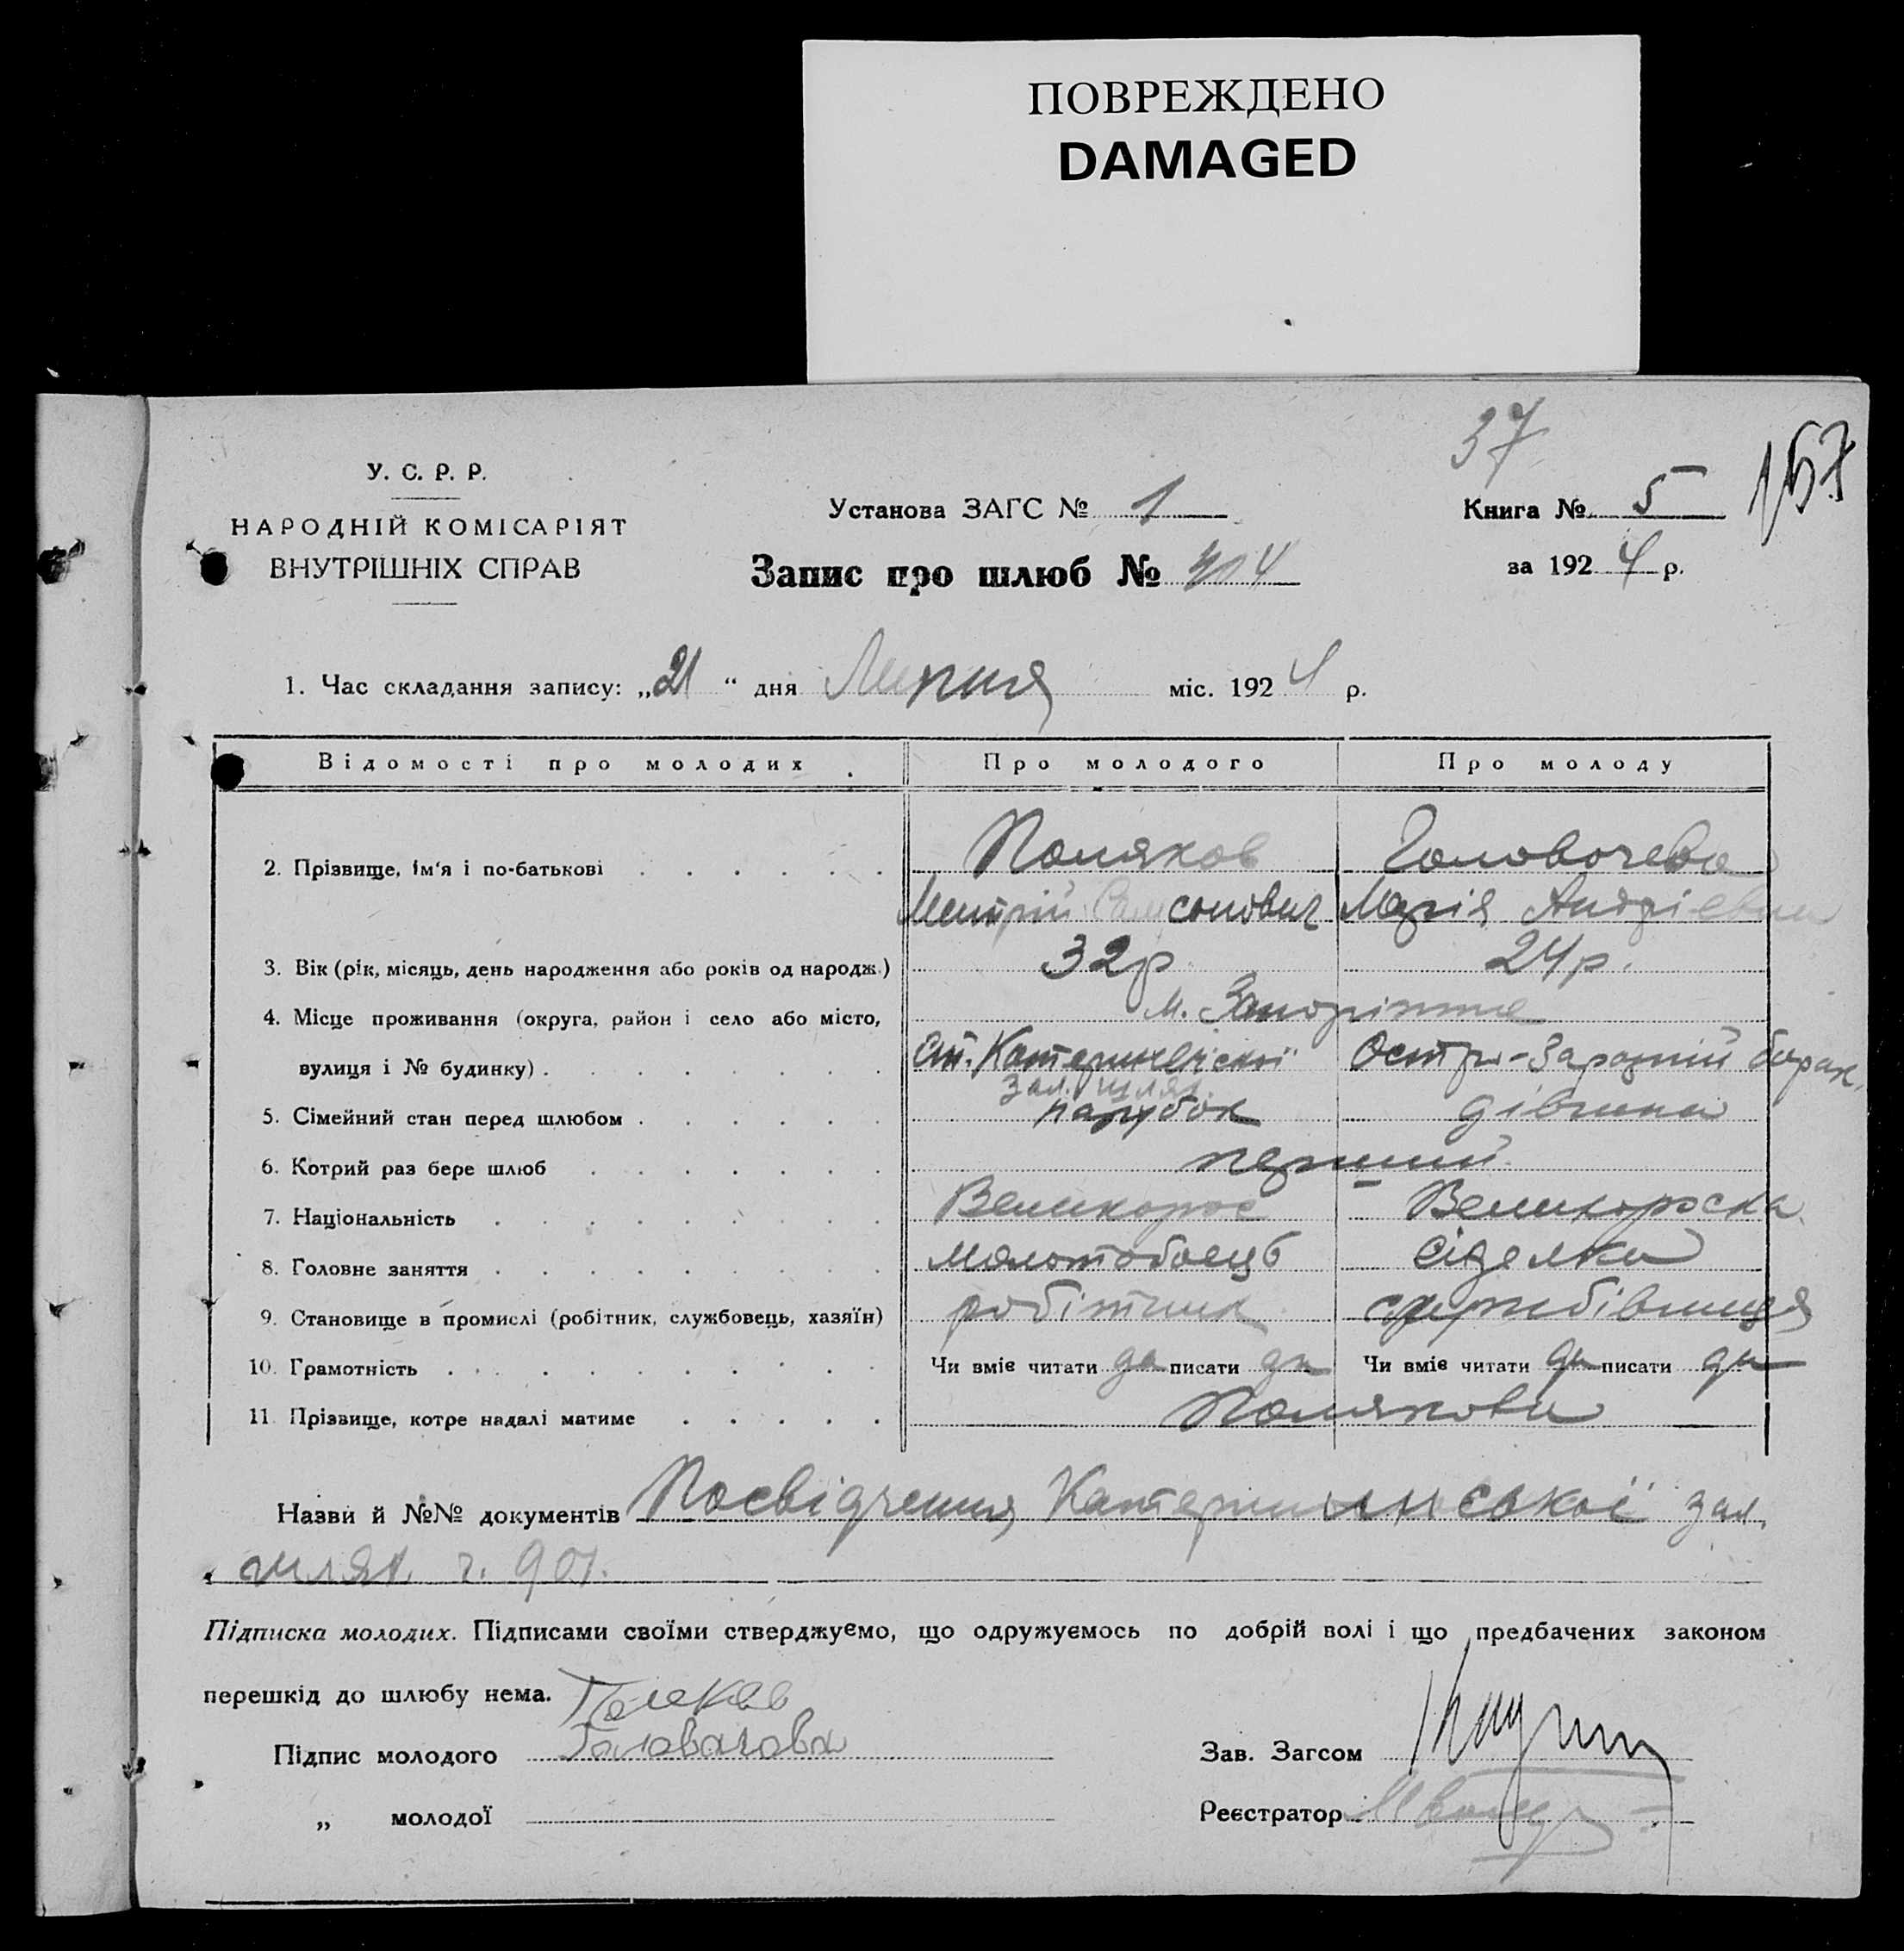 ПОВРЕЖДЕНО
DAMAGED
37
157
У. С. Р. Р.
НАРОДНІЙ КОМІСАРІЯТ
ВНУТРІШНІХ СПРАВ
Установа ЗАГС № 1
Книга № 5
Запис про шлюб №
за 1924 р.
1. Час складання запису: „21“ дня Липня міс. 1924 р.
Відомості про молодих Про молодого Про молоду
2. Прізвище, ім'я і по-батькові Поляков Головочева
Митрій Самсонович Марія Андріевна
3. Вік (рік, місяць, день народження або років од народж.) 32р 24р.
4. Місце проживання (округа, район і село або місто, м. Запоріжже
вулиця і № будинку) Ст. Катеринінської зал. шлях.
5. Сімейний стан перед шлюбом парубок дівчина
6. Котрий раз бере шлюб перший
7. Національність Великорос Великороска
8. Головне заняття молотобоець сіделка
9. Становище в промислі (робітник, службовець, хазяїн) робітник службівниця
10. Грамотність Чи вміє читати да писати да Чи вміє читати да писати да
11. Прізвище, котре надалі матиме Полякови
Назви й №№ документів Посвідчення Катерининської зал.
шлях. ч. 901.
Підписка молодих. Підписами своїми стверджуємо, що одружуємось по добрій волі і що предбачених законом
перешкід до шлюбу нема.
Підпис молодого Головачова
Зав. Загсом
„ молодої
Реєстратор